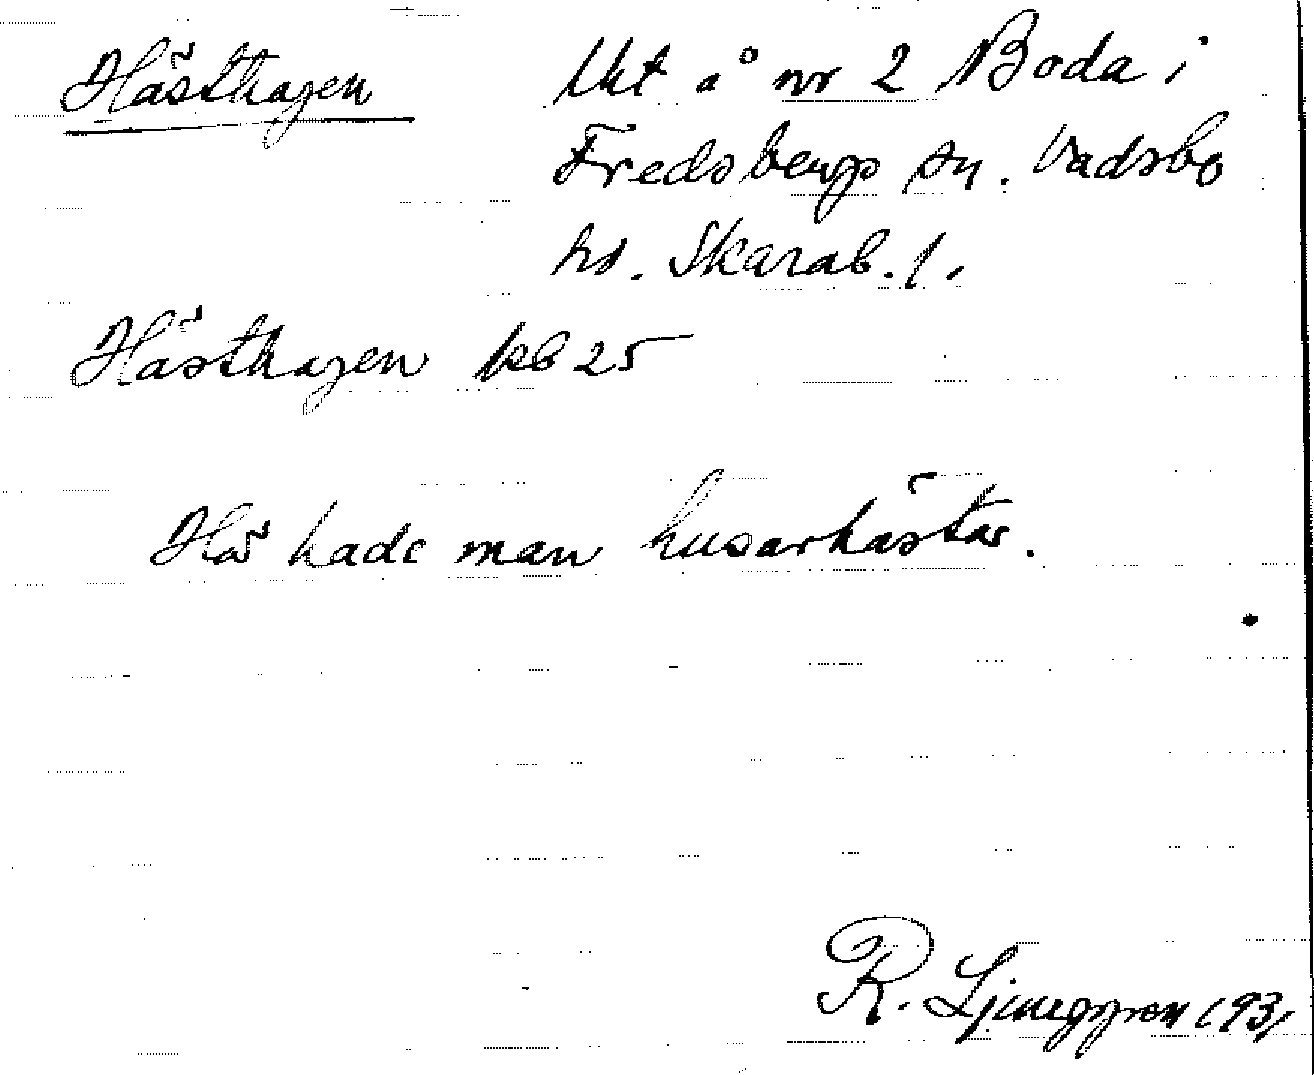 Hästhagen
Ukt å nr 2 Boda i
Fredsbergs sn. Vadsbo
hd. Skarab. l.
Hästhagen kb 25
Här hade man husarhästar.
R. Ljunggren 1931